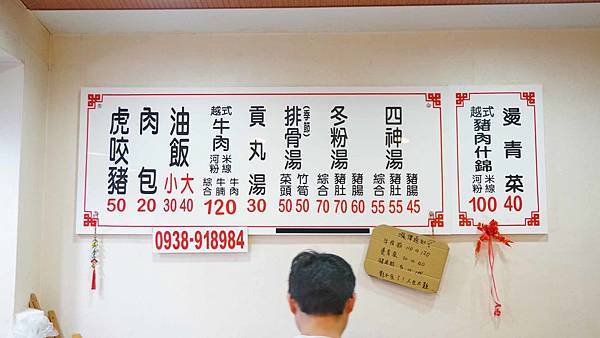 虎咬豬 50
肉包 20
油飯
小 大
30 40
越式牛肉 河粉 米線
綜合 牛腩 牛肉
120
貢丸湯 30
(季節)
排骨湯
菜頭 竹筍
50 50
冬粉湯
綜合 豬肚 豬腸
70 70 60
四神湯
綜合 豬肚 豬腸
55 55 45
越式豬肉什錦 河粉 米線
100
燙青菜
40
0938-918984